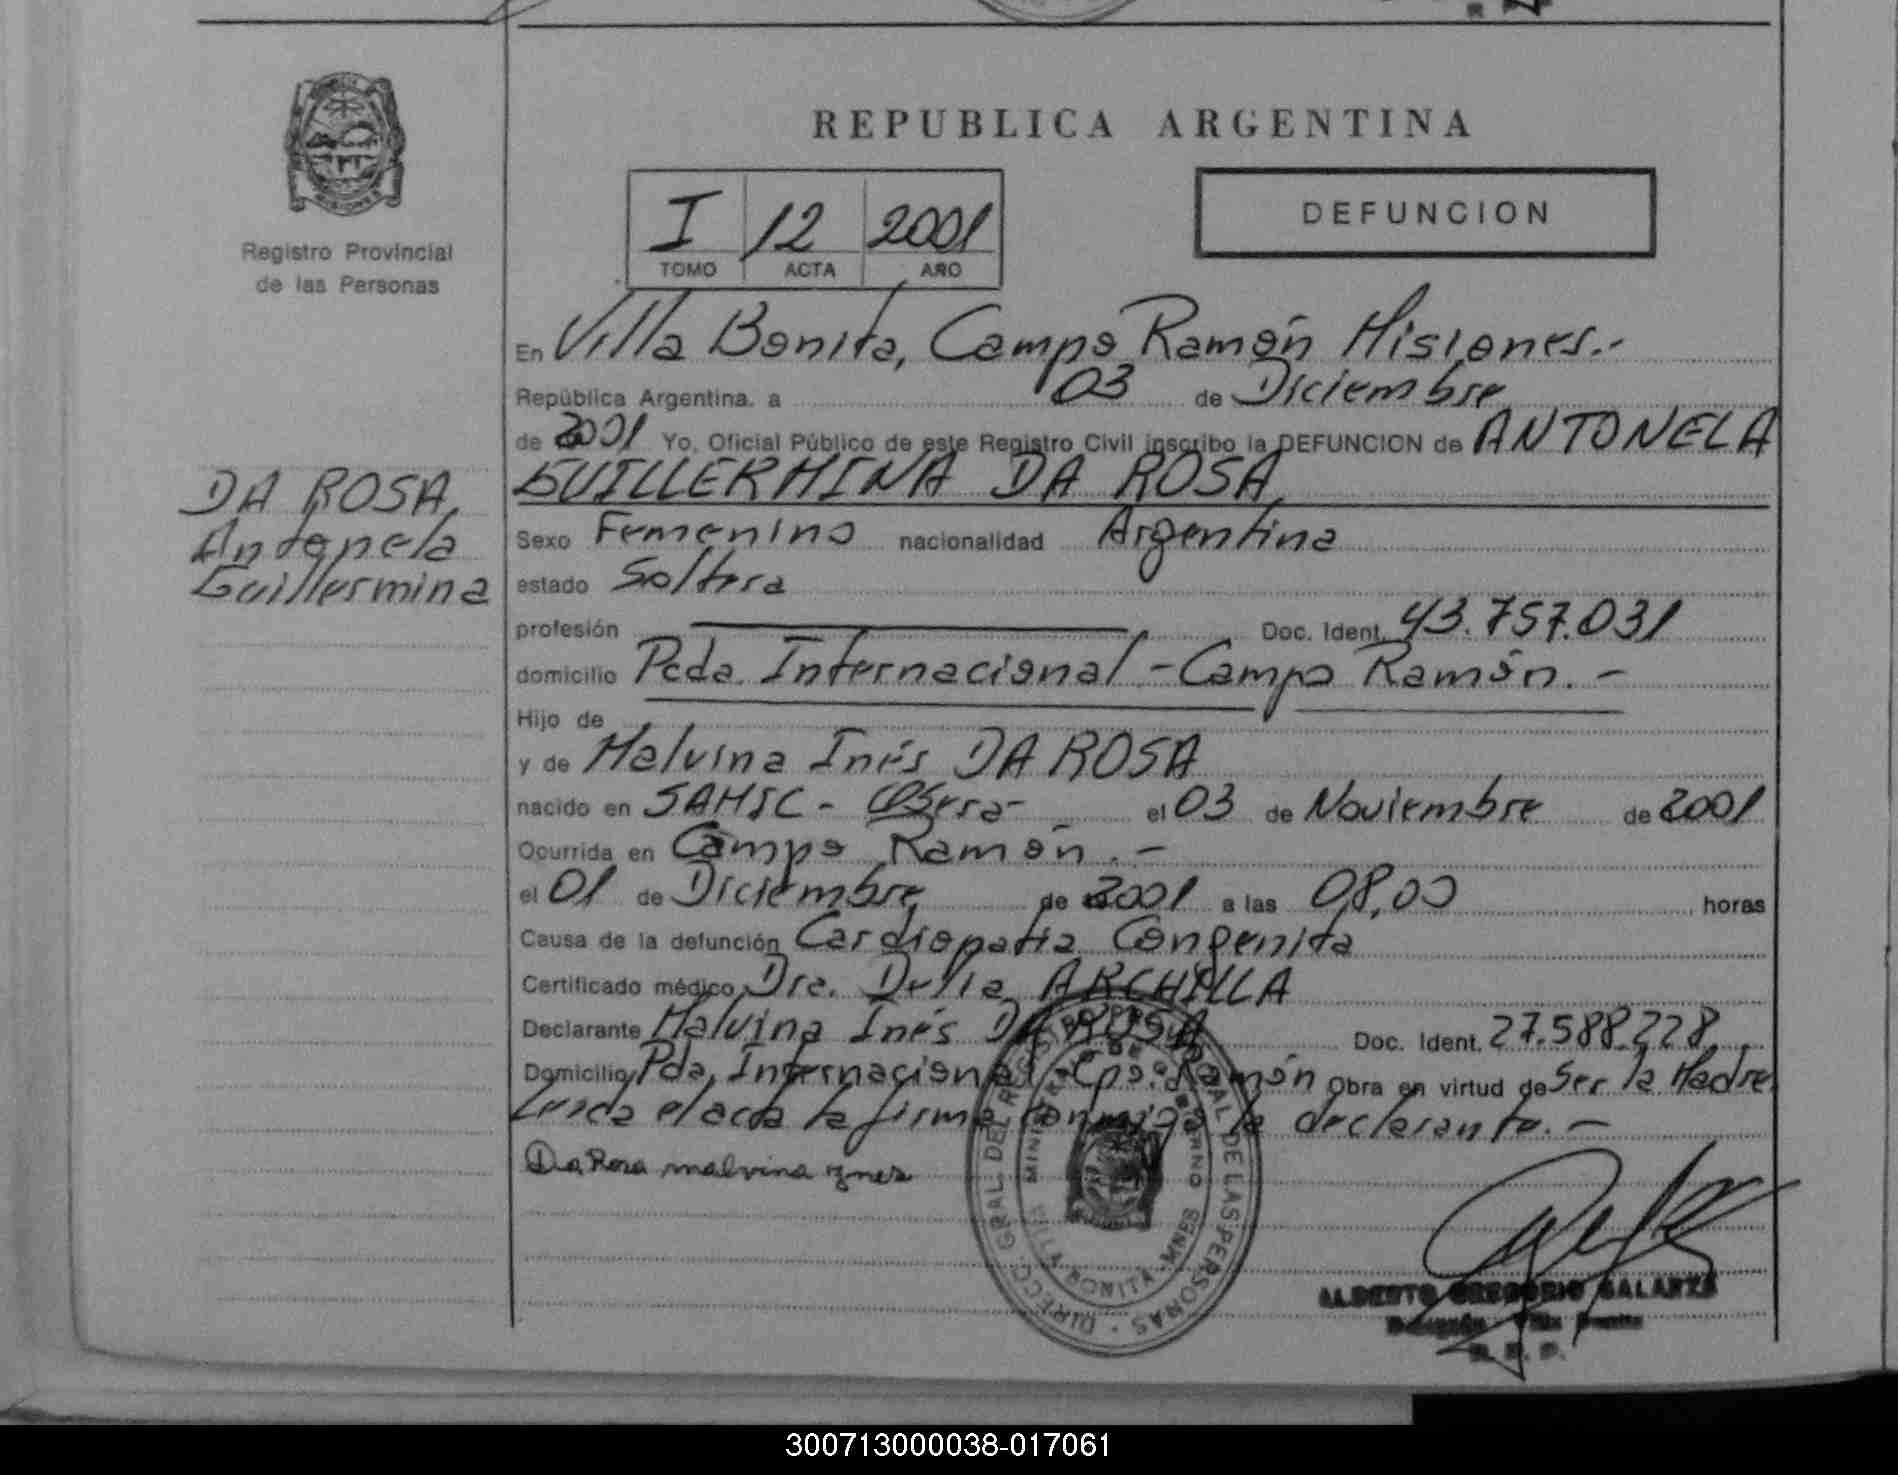 REPUBLICA ARGENTINA
MISIONES
Registro Provincial
de las Personas
I 12 2001
TOMO ACTA AÑO
DEFUNCION
En Villa Bonita, Campo Ramón Misiones.-
República Argentina, a 03 de Diciembre
de 2001 Yo, Oficial Público de este Registro Civil inscribo la DEFUNCION de ANTONELA
GUILLERMINA DA ROSA
DA ROSA
Antonela
Guillermina
Sexo Femenino nacionalidad Argentina
estado Soltera
profesión Doc. Ident. 43.757.031
domicilio Pcda. Internacional - Campo Ramón.-
Hijo de
y de Malvina Inés DA ROSA
nacido en SAMIC - Obera- el 03 de Noviembre de 2001
Ocurrida en Campo Ramón.-
el 01 de Diciembre de 2001 a las 08,00 horas
Causa de la defunción Cardiopatia Congenita
Certificado médico Dra. Delia ARCHILLA
Declarante Malvina Inés DA ROSA Doc. Ident. 27.588.228
Domicilio Pda, Internacional Cpo. Ramón Obra en virtud de Ser la Madre
Leida el acta la firma conmigo la declarante.-
Da Rosa malvina ynes
DIRECC. GRAL. DEL REGISTRO PROVINCIAL DE LAS PERSONAS
MINISTERIO DE GOBIERNO
VILLA BONITA - MNES
ALBERTO GREGORIO GALARZA
Villa Bonita
R. P. P.
300713000038-017061